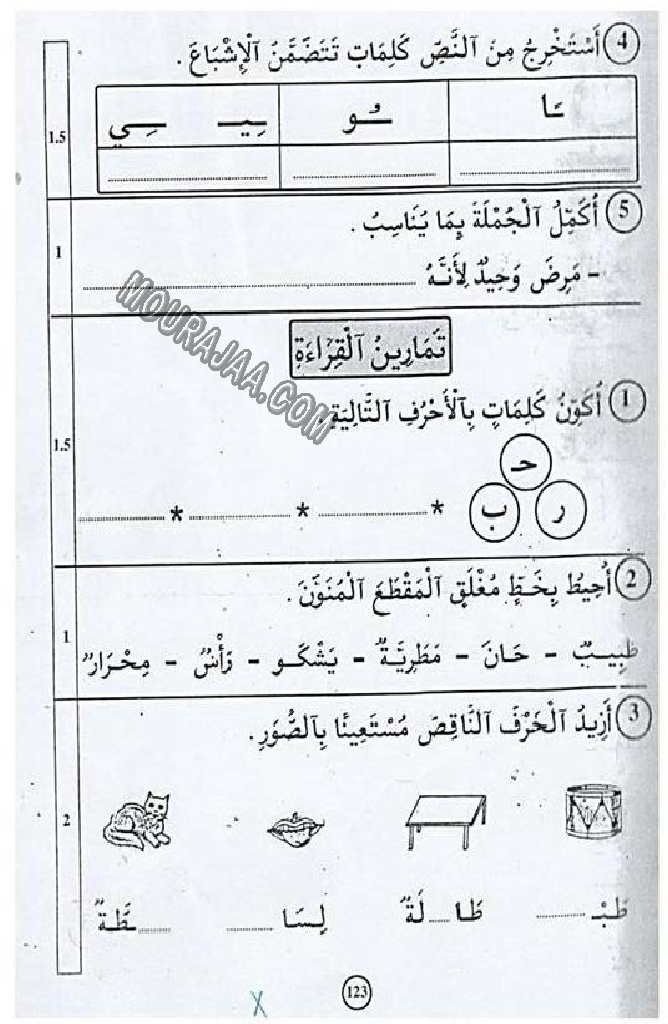 4 أَسْتَخْرِجُ مِنَ ٱلنَّصِّ كَلِمَاتٍ تَتَضَمَّنُ ٱلْإِشْبَاعَ .
ـَـا ـُـو ـِـيـ ـِـي
1.5
..................... ..................... .....................
5 أُكَمِّلُ ٱلْجُمْلَةَ بِمَا يُنَاسِبُ .
1
- مَرِضَ وَحِيدٌ لِأَنَّهُ .....................
MOURAJAA.COM
تَمَارِينُ ٱلْقِرَاءَةِ
1 أُكَوِّنُ كَلِمَاتٍ بِٱلْأَحْرُفِ ٱلتَّالِيَةِ.
1.5
حـ
ر ب
* ..................... * ..................... * .....................
2 أُحِيطُ بِخَطٍّ مُغْلَقٍ ٱلْمَقْطَعَ ٱلْمُنَوَّنَ .
1
طَبِيبٌ - حَانَ - مَطَرِيَّةٌ - يَشْكُو - رَأْسٌ - مِحْرَارٌ
3 أَزِيدُ ٱلْحَرْفَ ٱلنَّاقِصَ مُسْتَعِينًا بِٱلصُّوَرِ .
2
طَبْـ ........ طَا ....لَةٌ لِسَا ........ ......ـطَّةٌ
123
X